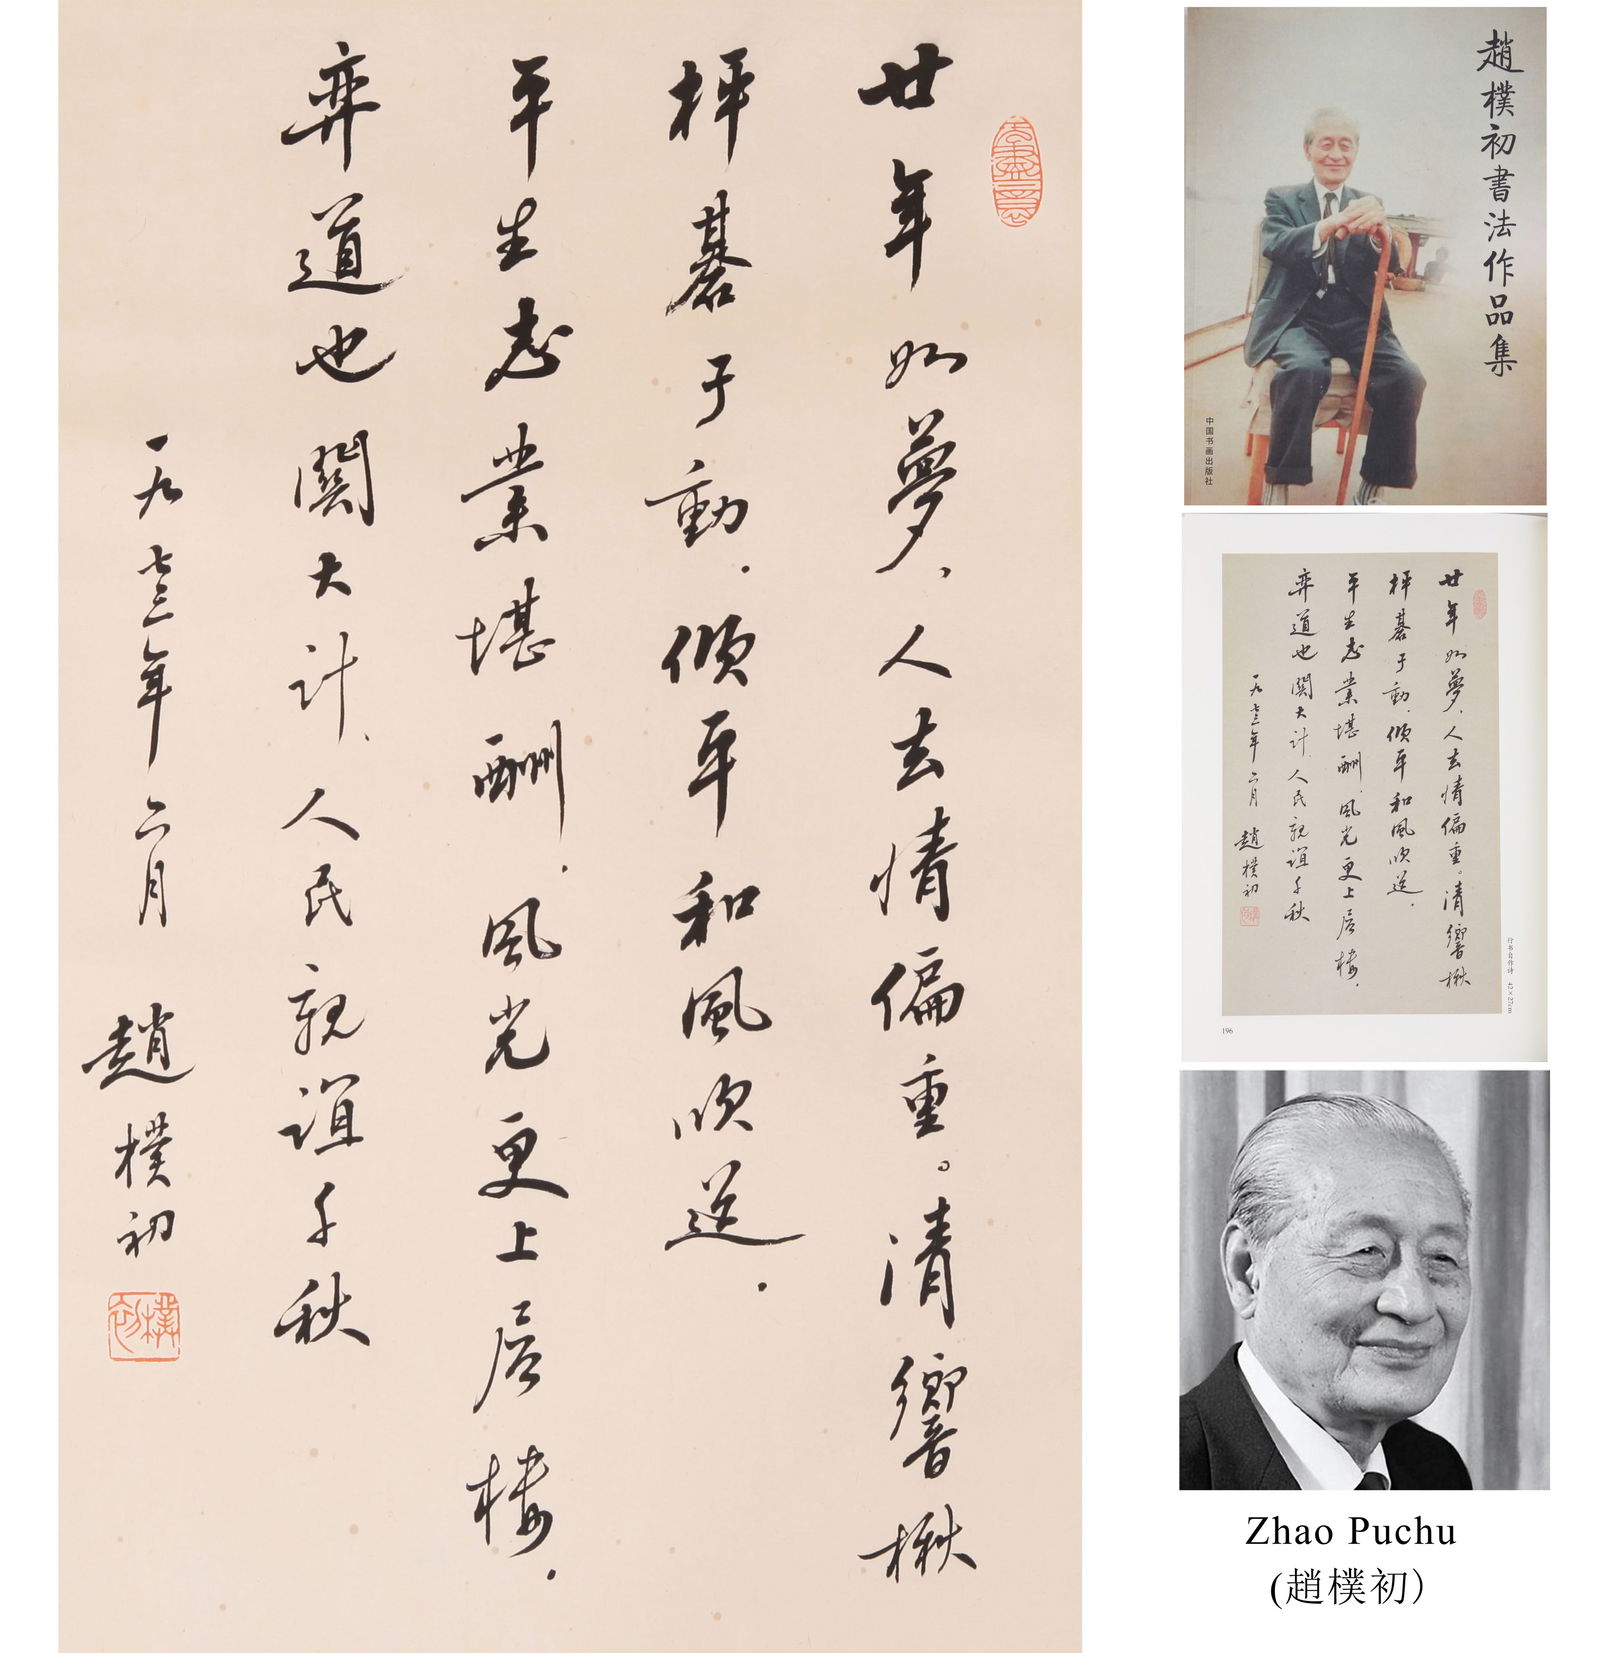 廿年如夢、人去情偏重。清響楸
枰碁子動.傾耳和風吹送.
平生志業堪酬.風光更上層樓.
弈道也關大計、人民親誼千秋
一九七三年六月 趙樸初
無盡意
樸初
趙樸初書法作品集
中国书画出版社
廿年如夢、人去情偏重。清響楸
枰碁子動.傾耳和風吹送.
平生志業堪酬.風光更上層樓.
弈道也關大計、人民親誼千秋
一九七三年六月 趙樸初
行书自作诗 42×27cm
196
Zhao Puchu
(趙樸初)